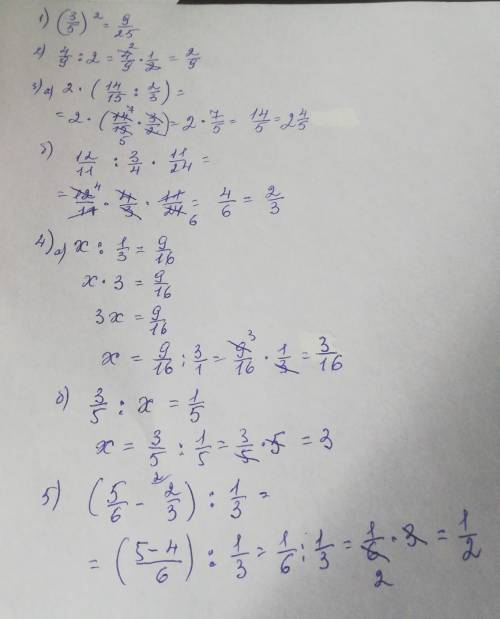 1) (3/5)² = 9/25
2) 4/9 : 2 = 4²/9 · 1/2 = 2/9
3) a) 2 · (14/15 : 2/3) =
= 2 · (14⁷/15₅ · 3/2) = 2 · 7/5 = 14/5 = 2 4/5
б) 12/11 : 3/4 · 11/24 =
= 12⁴/11 · 4/3 · 11/24₆ = 4/6 = 2/3
4) a) x : 1/3 = 9/16
x · 3 = 9/16
3x = 9/16
x = 9/16 : 3/1 = 9³/16 · 1/3 = 3/16
б) 3/5 : x = 1/5
x = 3/5 : 1/5 = 3/5 · 5 = 3
5) (5/6 - 2²/3) : 1/3 =
= (5-4/6) : 1/3 = 1/6 : 1/3 = 1/6₂ · 3 = 1/2